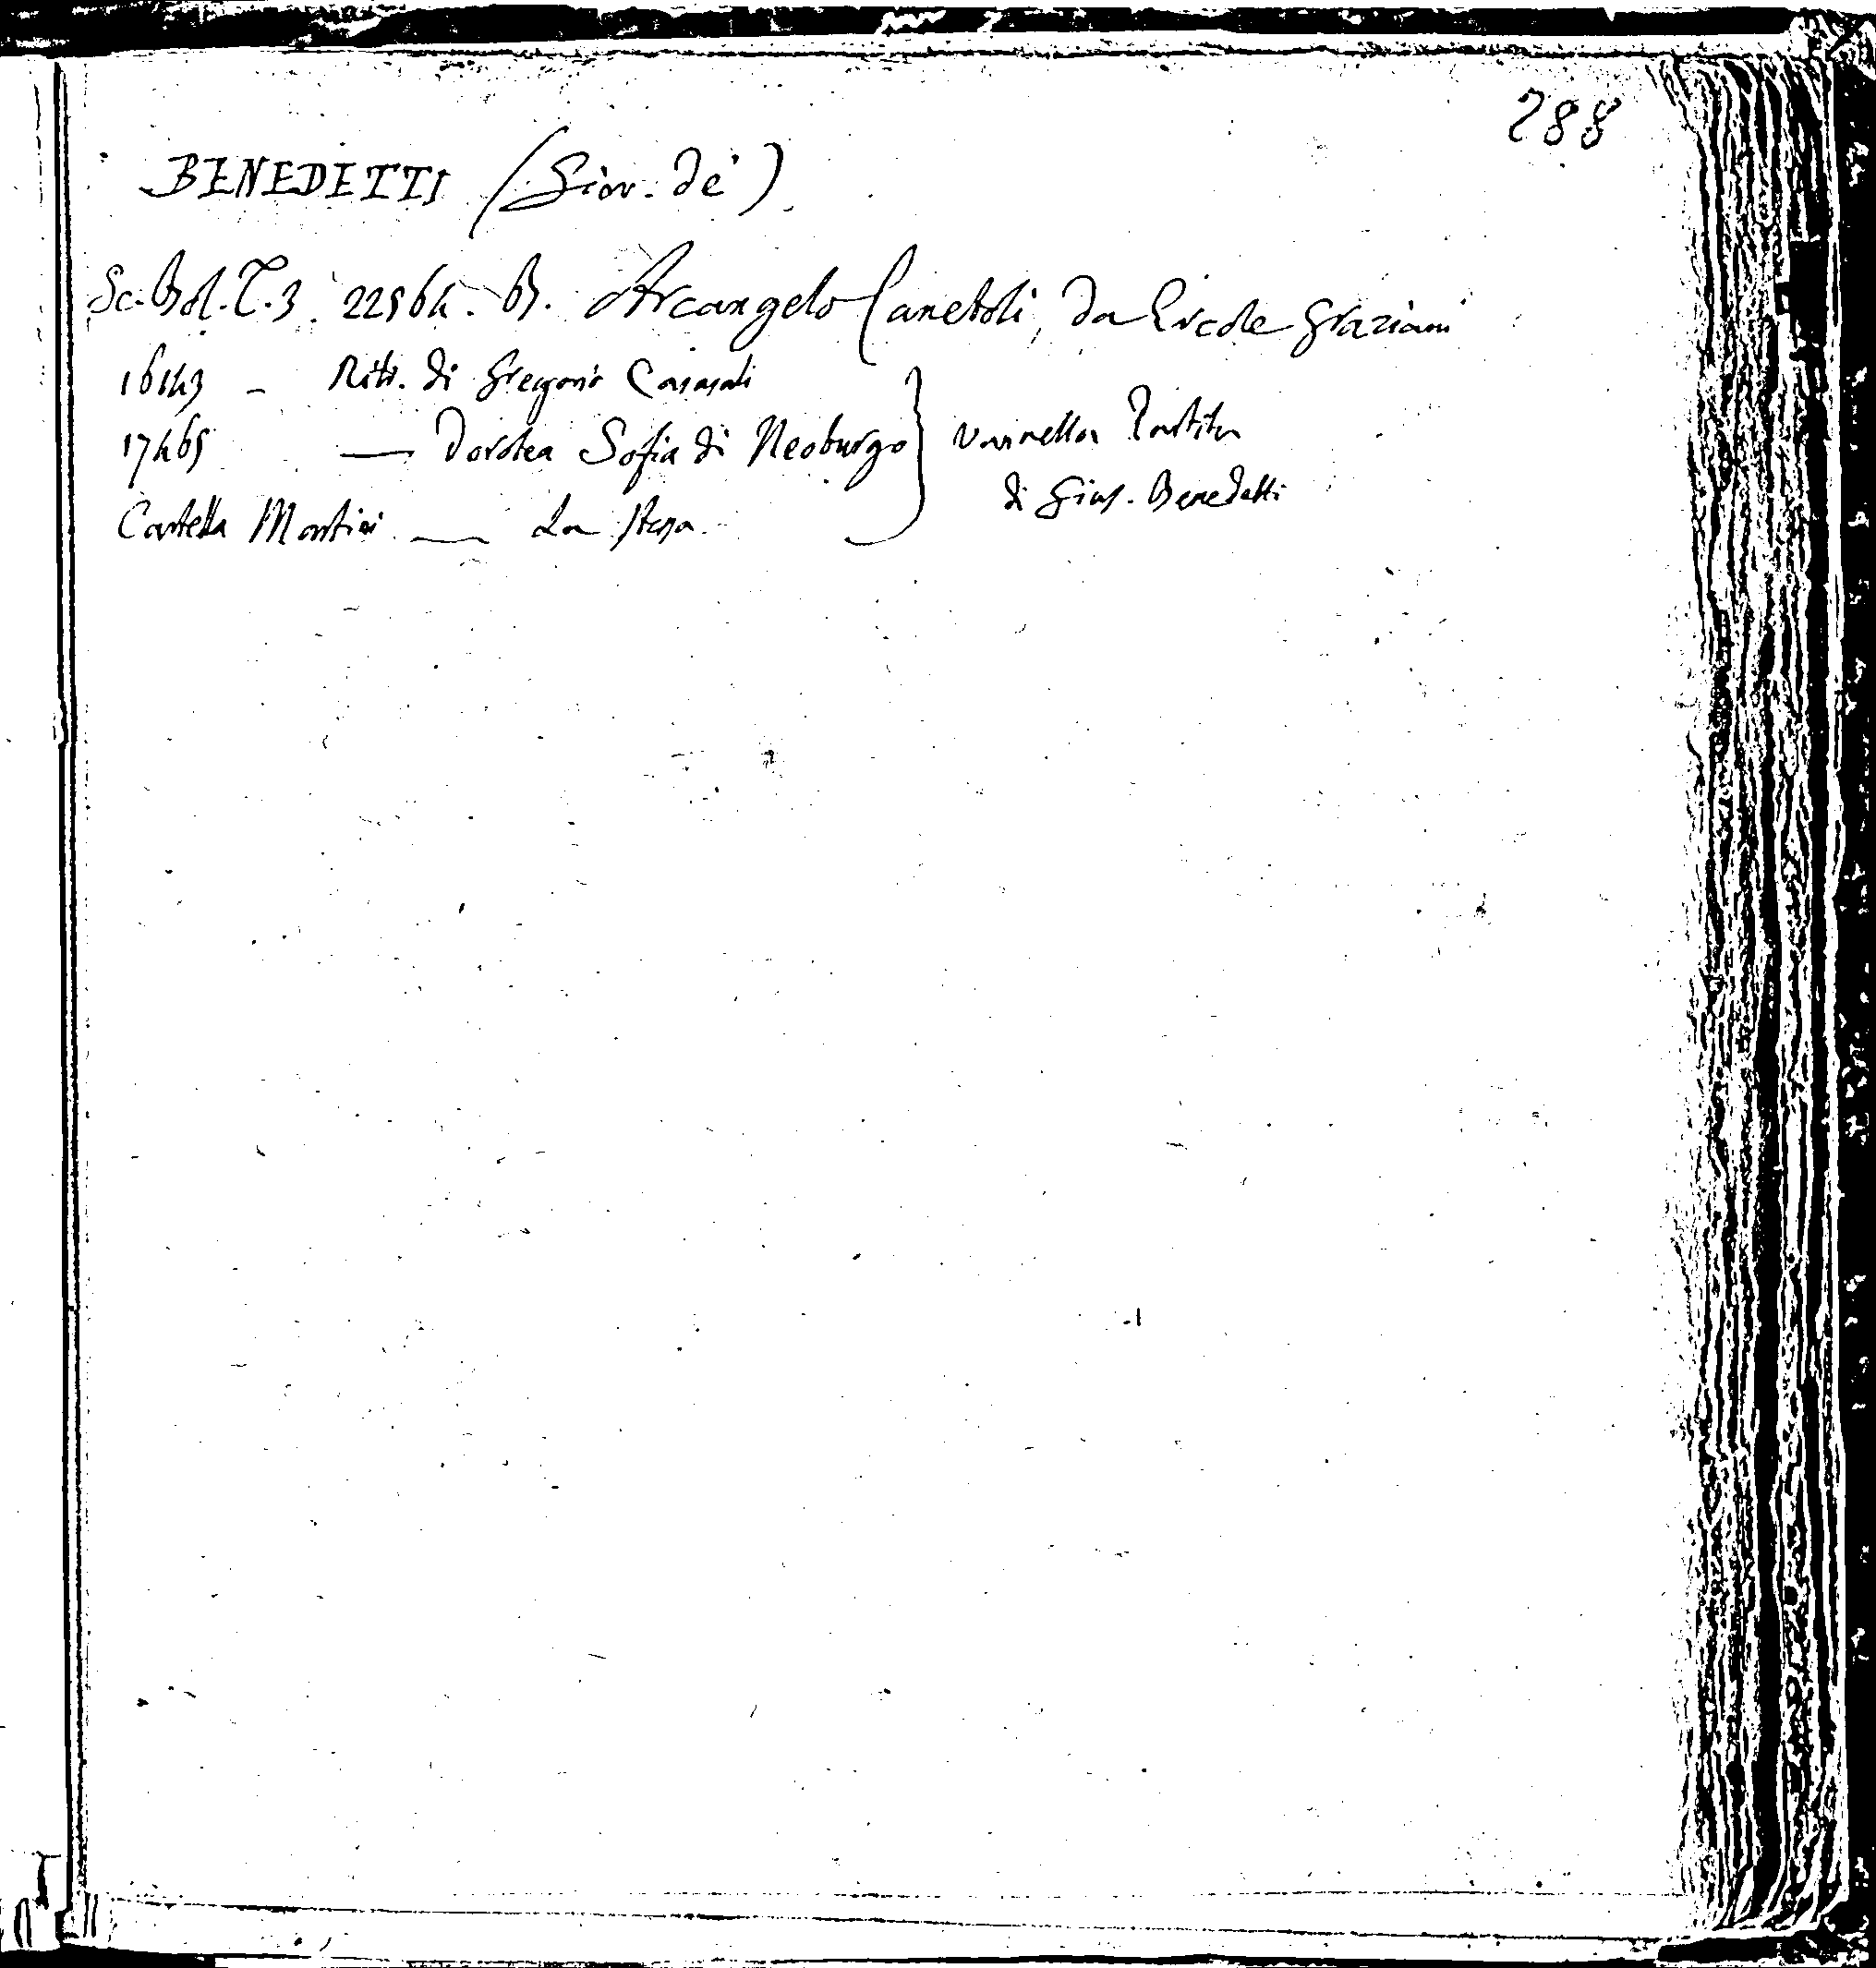 288
BENEDETTI (Giov. de')
Sc. Bol. T. 3. 22564. B. Arcangelo Canetoli, da Ercole Graziani
16143 - Ritr. di Gregorio Casali
17465 — Dorotea Sofia di Neoburgo
Cartella Martini — La stessa
di Gius. Benedetti